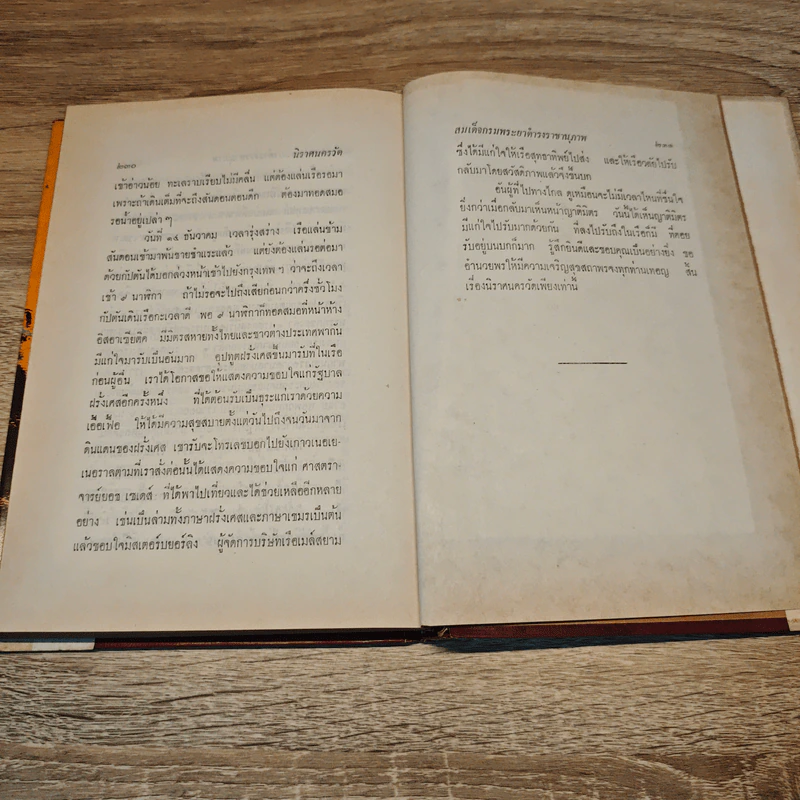 ๒๓๐
นิราศนครวัด
เข้าอ่าวน้อย ทะเลราบเรียบไม่มีคลื่น แต่ต้องแล่นเรือรอมา
เพราะถ้าเดินเต็มที่จะถึงสันดอนตอนดึก ต้องมาทอดสมอ
รอน้ำอยู่เปล่า ๆ
วันที่ ๑๔ ธันวาคม เวลารุ่งสร่าง เรือแล่นข้าม
สันดอนเข้ามาพ้นชายชำแระแล้ว แต่ยังต้องแล่นรอต่อมา
ด้วยกัปตันได้บอกล่วงหน้าเข้าไปยังกรุงเทพ ๆ ว่าจะถึงเวลา
เช้า ๙ นาฬิกา ถ้าไม่รอจะไปถึงเสียก่อนกว่าครึ่งชั่วโมง
กัปตันเดินเรือกะเวลาดี พอ ๙ นาฬิกาก็ทอดสมอที่หน้าห้าง
อิสอาเซียติค มีมิตรสหายทั้งไทยและชาวต่างประเทศพากัน
มีแก่ใจมารับเป็นอันมาก อุปทูตฝรั่งเศสขึ้นมารับที่ในเรือ
ก่อนผู้อื่น เราได้โอกาสขอให้แสดงความขอบใจแก่รัฐบาล
ฝรั่งเศสอีกครั้งหนึ่ง ที่ได้ต้อนรับเป็นธุระแก่เราด้วยความ
เอื้อเฟื้อ ให้ได้มีความสุขสบายตั้งแต่วันไปถึงจนวันมาจาก
ดินแดนของฝรั่งเศส เขารับจะโทรเลขบอกไปยังเกาวเนอเย-
เนอราลตามที่เราสั่งต่อนั้นได้แสดงความขอบใจแก่ ศาสตรา-
จารย์ยอช เซเดส์ ที่ได้พาไปเที่ยวและได้ช่วยเหลืออีกหลาย
อย่าง เช่นเป็นล่ามทั้งภาษาฝรั่งเศสและภาษาเขมรเป็นต้น
แล้วขอบใจมิสเตอร์ปยอร์ลิง ผู้จัดการบริษัทเรือเมล์สยาม
สมเด็จกรมพระยาดำรงราชานุภาพ
๒๓๑
ซึ่งได้มีแก่ใจให้เรือสุทธาทิพย์ไปส่ง และให้เรือวลัยไปรับ
กลับมาโดยสวัสดิภาพแล้วจึงขึ้นบก
อันผู้ที่ไปทางไกล ดูเหมือนจะไม่มีเวลาไหนที่ชื่นใจ
ยิ่งกว่าเมื่อกลับมาเห็นหน้าญาติมิตร วันนี้ได้เห็นญาติมิตร
มีแก่ใจไปรับมากด้วยกัน ที่ลงไปรับถึงในเรือก็มี ที่คอย
รับอยู่บนบกก็มาก รู้สึกยินดีและขอบคุณเป็นอย่างยิ่ง ขอ
อำนวยพรให้มีความเจริญสุขสถาพรจงทุกท่านเทอญ สิ้น
เรื่องนิราศนครวัดเพียงเท่านี้